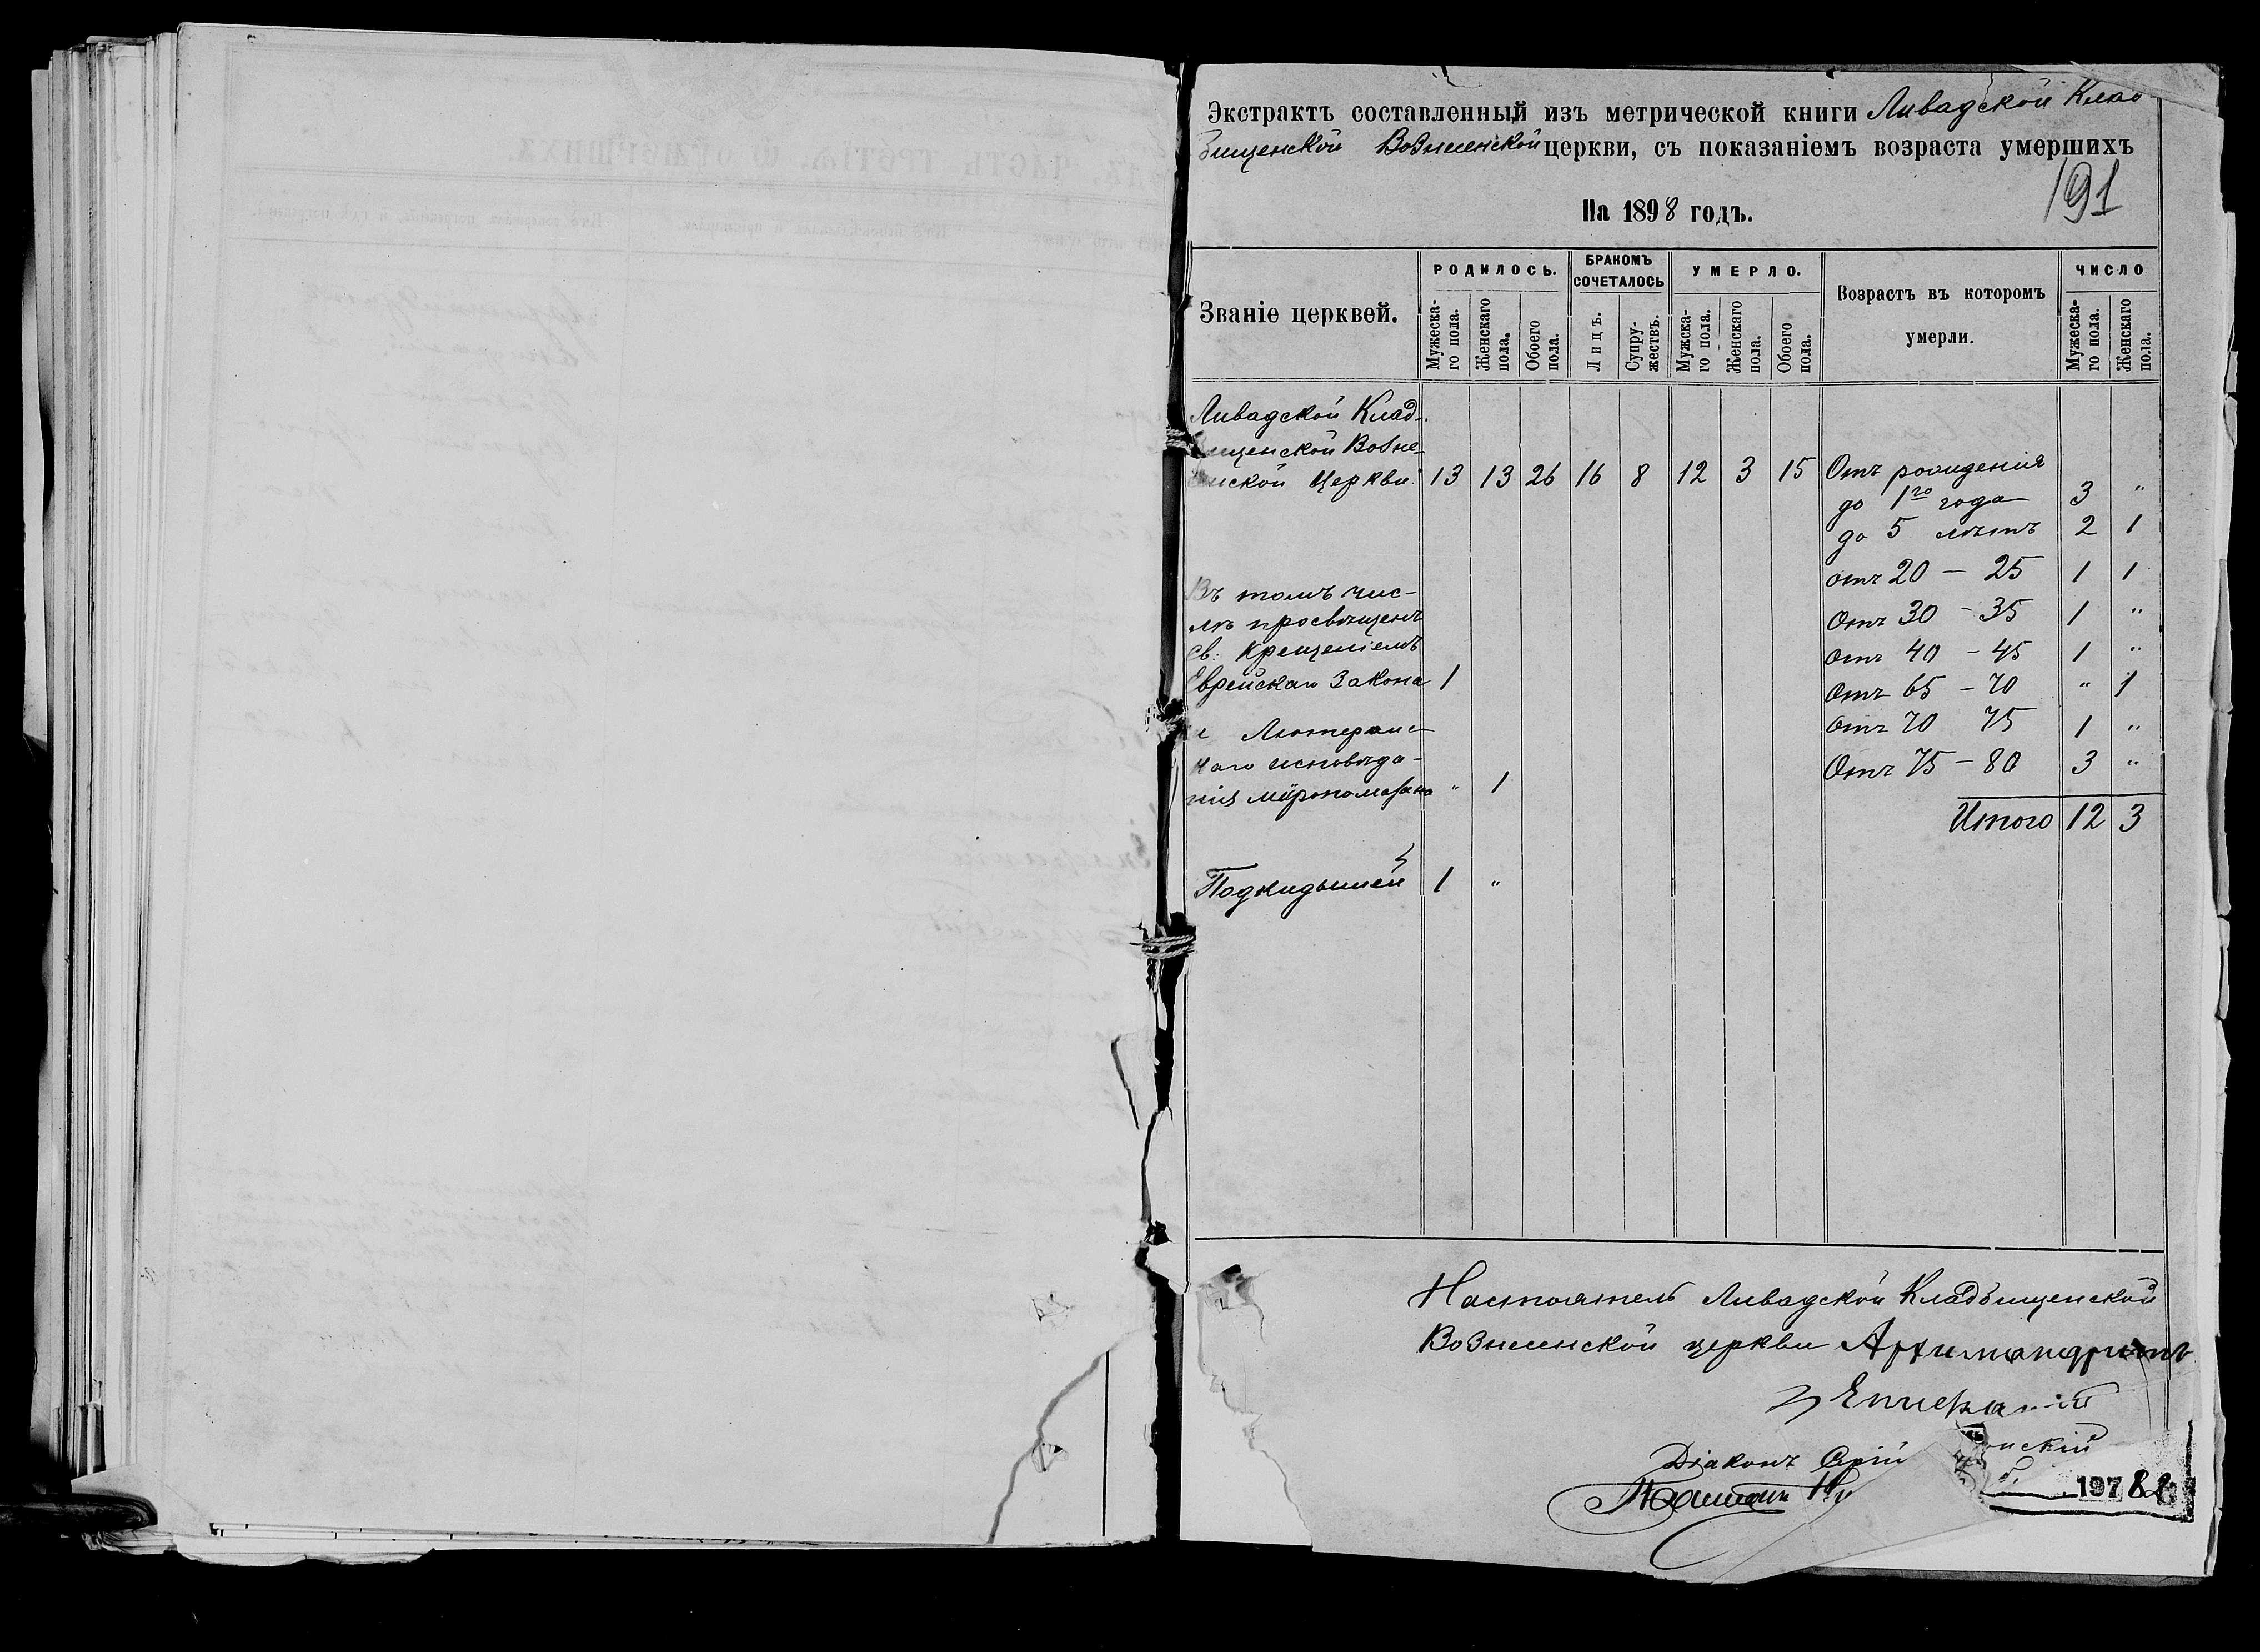 Экстрактъ составленный изъ метрической книги Ливадской Клад-
бищенской Вознесенской церкви, съ показаніемъ возраста умершихъ
191
На 1898 годъ.
Званіе церквей.
РОДИЛОСЬ.
БРАКОМЪ СОЧЕТАЛОСЬ
УМЕРЛО.
Возрастъ въ которомъ
умерли.
ЧИСЛО
Мужеска-
го пола.
Женскаго
пола.
Обоего
пола.
Лицъ.
Супру-
жествъ.
Мужска-
го пола.
Женскаго
пола.
Обоего
пола.
Мужеска-
го пола.
Женскаго
пола.
Ливадской Клад-
бищенской Возне-
сенской Церкви. 13 13 26 16 8 12 3 15 Отъ рожденія
до 1го года 3 "
до 5 лѣтъ 2 1
отъ 20 — 25 1 1
Отъ 30 — 35 1 "
Отъ 40 — 45 1 "
Отъ 65 — 70 " 1
Отъ 70 75 1 "
Отъ 75 — 80 3 "
Итого 12 3
Въ томъ чис-
лѣ просвѣщенъ
Св. Крещеніемъ
Еврейскаго Закона 1
и Лютеранс-
каго исповѣда-
нія мѵропомазана " 1
Подкидышей 1 "
Настоятель Ливадской Кладбищенской
Вознесенской церкви Архимандритъ
Епифаній
Діаконъ
онскій
197 82